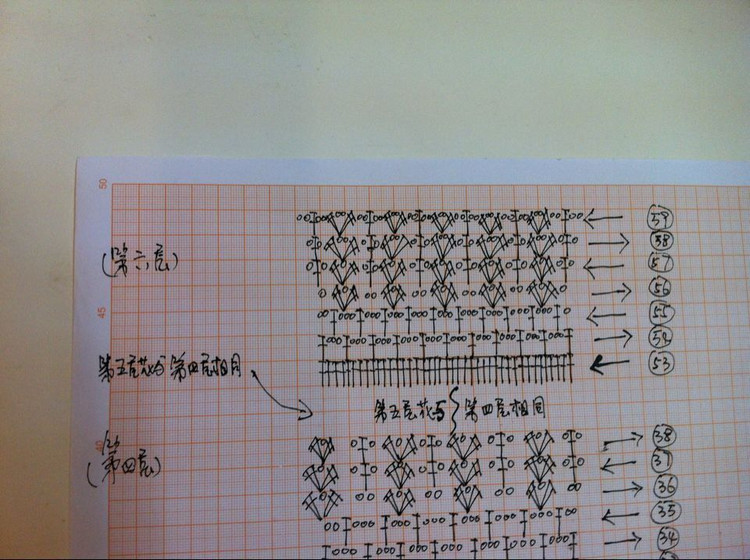 50
59
58
(第六层)
57
56
45
55
54
53
第五层花与第四层相同
第五层花与 第四层相同
38
(第四层)
37
36
35
34